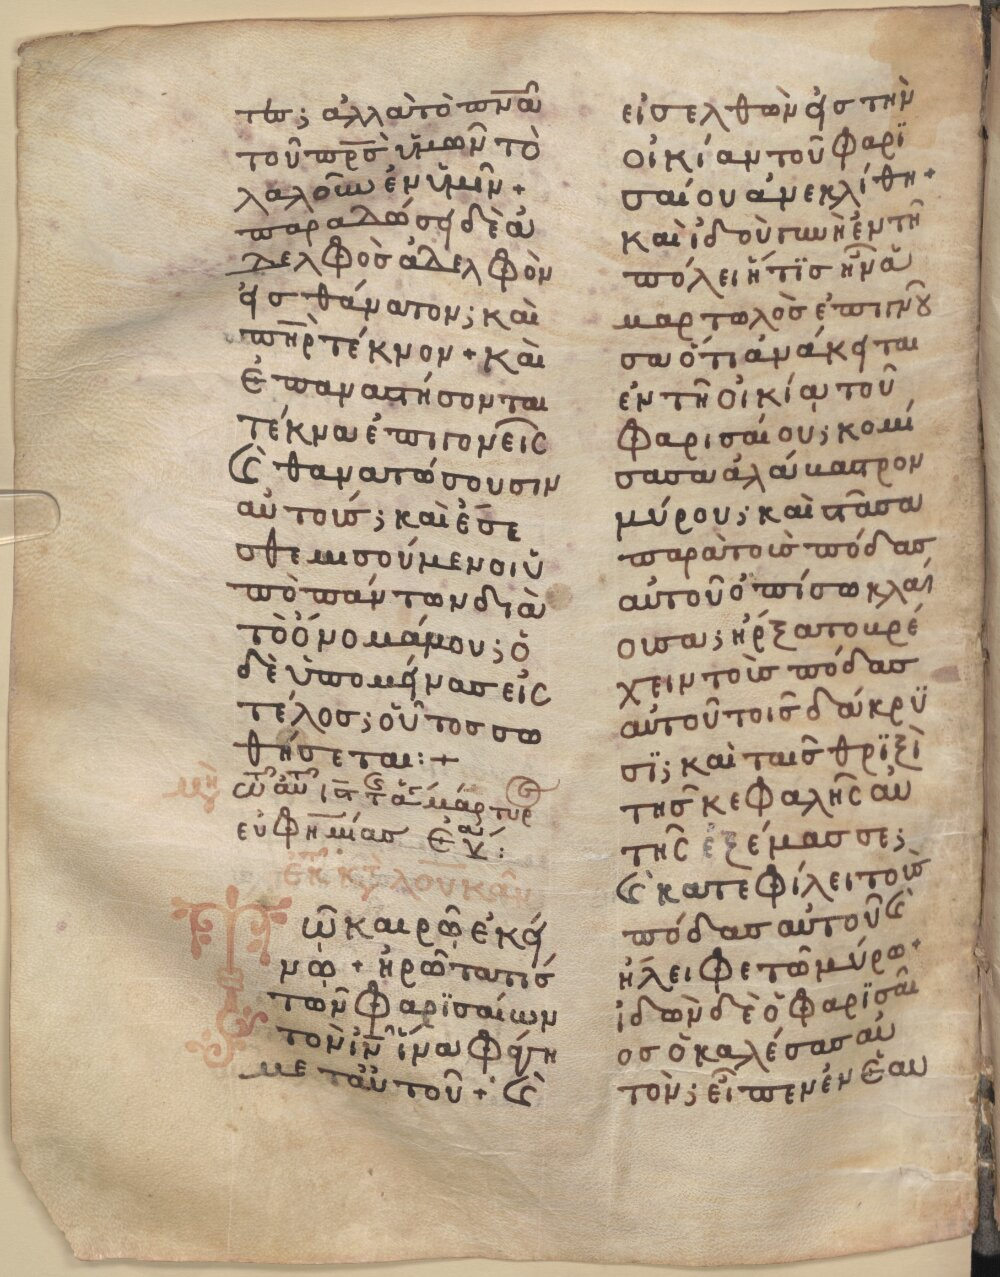 τὼς; ἀλλὰ τὸ πν̅α̅
τοῦ πρ̅σ̅ ὑμῶν τὸ
λαλοῦν ἐν ὑμῖν +
παραδώσει δὲ ἀ
δελφὸσ ἀδελφὸν
εἰσ θάνατον; καὶ
πη̅ρ̅ τέκνον + καὶ
ἐπαναστήσονται
τέκνα ἐπι γονεῖς
ϗ θανατώσουσιν
αὐτοὺσ; καὶ ἔσε
σθε μισούμενοι ὑ
πὸ πάντων διὰ
τὸ ὄνομά μου; ὁ
δὲ ὑπομείνασ εἰς
τέλοσ; οὗτοσ σω
θήσεται: +
μάρτυρ
εὐφημίασ
λουκᾶν
Τῶ καιρῶ ἐκεί
νω + ἠρώτα τισ
τῶν Φαρϊσαίων
τὸν ι̅ν̅ ἵνα φάγη
μετ αὐτοῦ + ϗ
εἰσελθὼν εἰσ τὴν
οἰκίαν τοῦ Φαρϊ
σαίου ἀνεκλίθη +
καὶ ἰδοὺ γυνὴ ἐν τῆ
πόλει ἥτϊσ ἦν ἁ
μαρτωλὸσ ἐπιγνοῦ
σα ὅτι ἀνάκειται
ἐν τῆ οἰκία τοῦ
Φαρισαίου; κομί
σασα ἀλάβαστρον
μύρου; καὶ στᾶσα
παρὰ τοὺσ πόδασ
αὐτοῦ ὀπίσω κλαί
ουσα; ἤρξατο βρέ
χειν τοὺσ πόδασ
αὐτοῦ τοῖσ δάκρϋ
σϊ; καὶ ταῖσ θρϊξὶ
τησ κεφαλῆς αὐ
τῆς ἐξέμασσε;
ϗ κατεφίλει τοὺσ
πόδασ αὐτοῦ ϗ
ἤλειφε τῶ μύρω +
ἰδὼν δὲ ὁ Φαρϊσαῖ
οσ ὁ καλέσασ αὐ
τὸν; εἶπεν ἐν ἑαυ